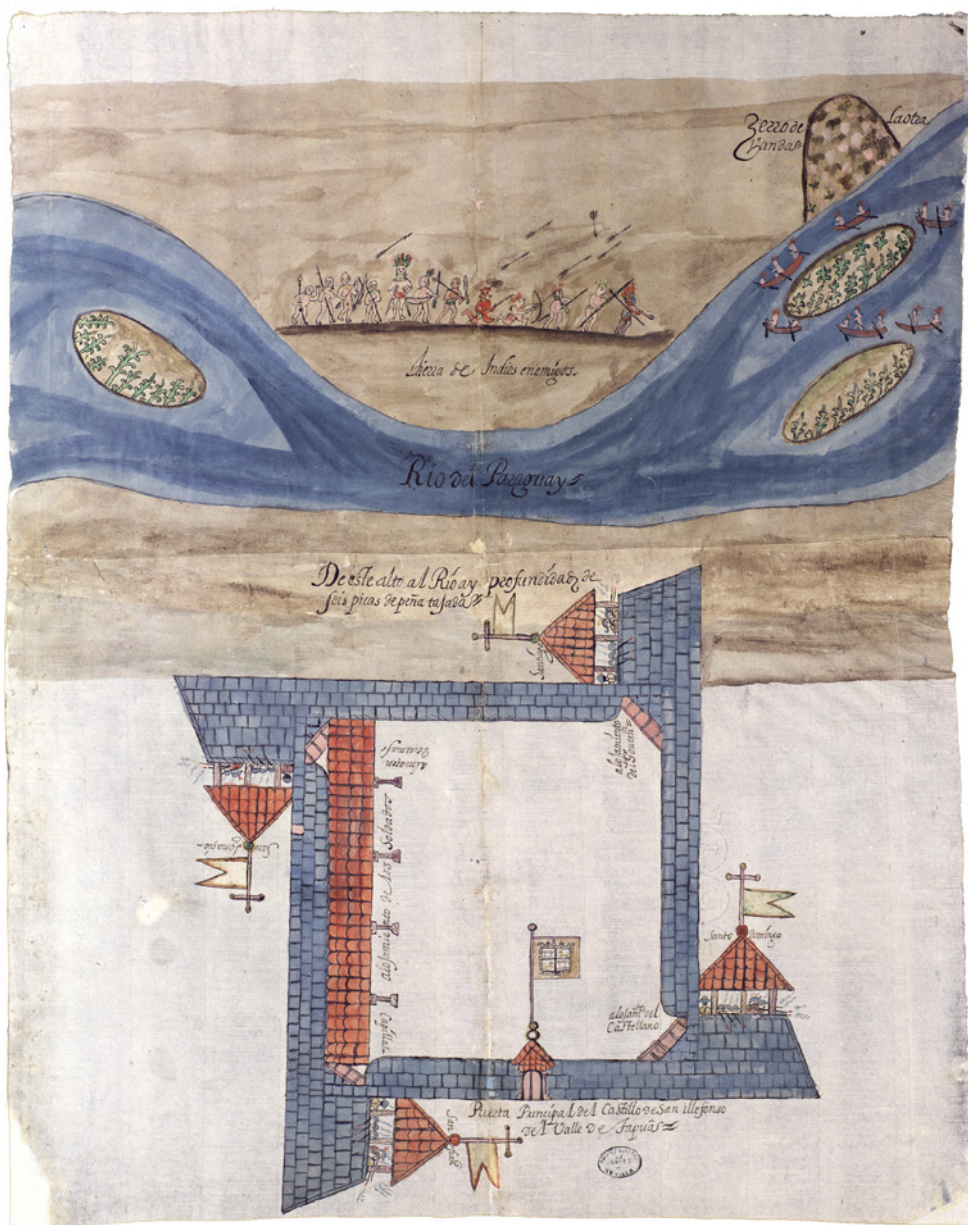 Zerro de
Landas
la otra
tierra de Indios enemigos.
Rio del Paraguay
De este alto al Rio ay profundidad de
seis picas de peña tajada
Santiago
almazen
alojamiento
del
San Ignacio
alojamiento de los Soldados
Capilla
Santo Domingo
alojamto del
Castellano
Puerta Principal del Castillo de San illefonso
del Valle de Tapuas
San